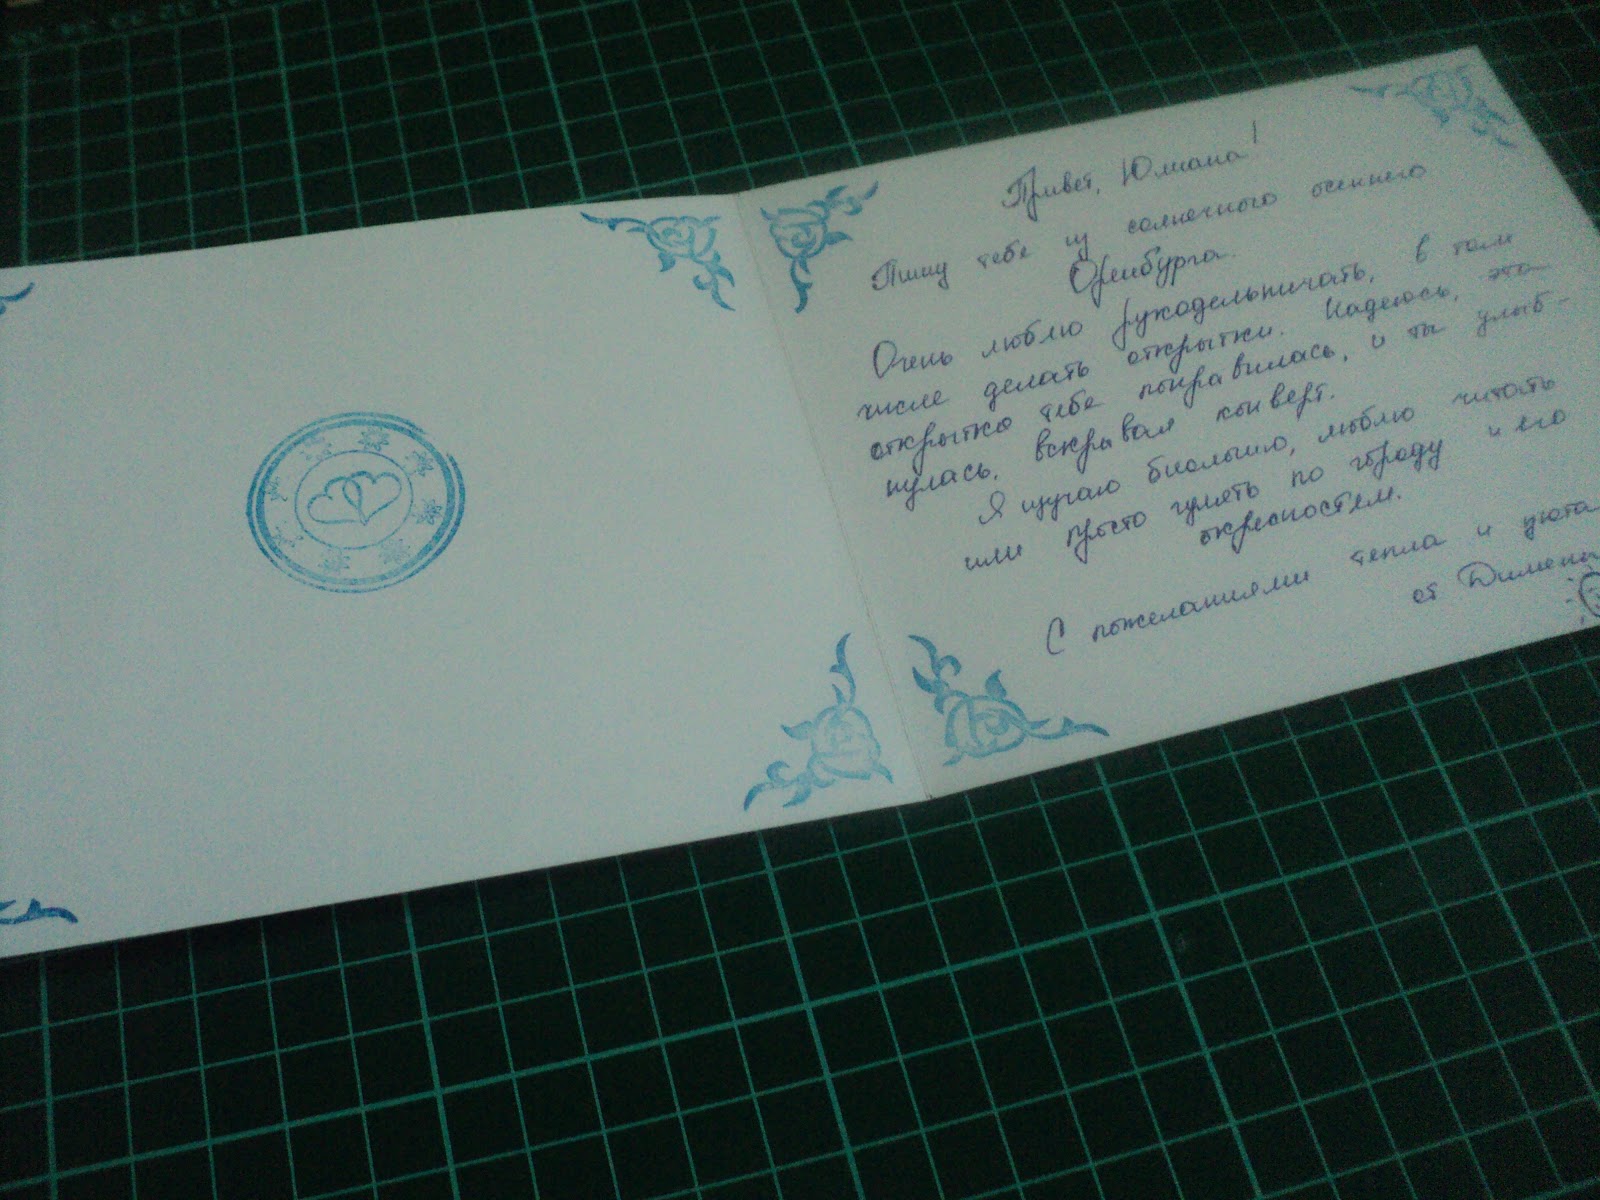 Привет, Юлиана!
Пишу тебе из солнечного осеннего
Оренбурга.
Очень люблю рукодельничать, в том
числе делать открытки. Надеюсь, эта
открытка тебе понравилась, и ты улыб-
нулась, вскрывая конверт.
Я изучаю биологию, люблю читать
или просто гулять по городу и его
окресностям.
С пожеланиями тепла и уюта
от